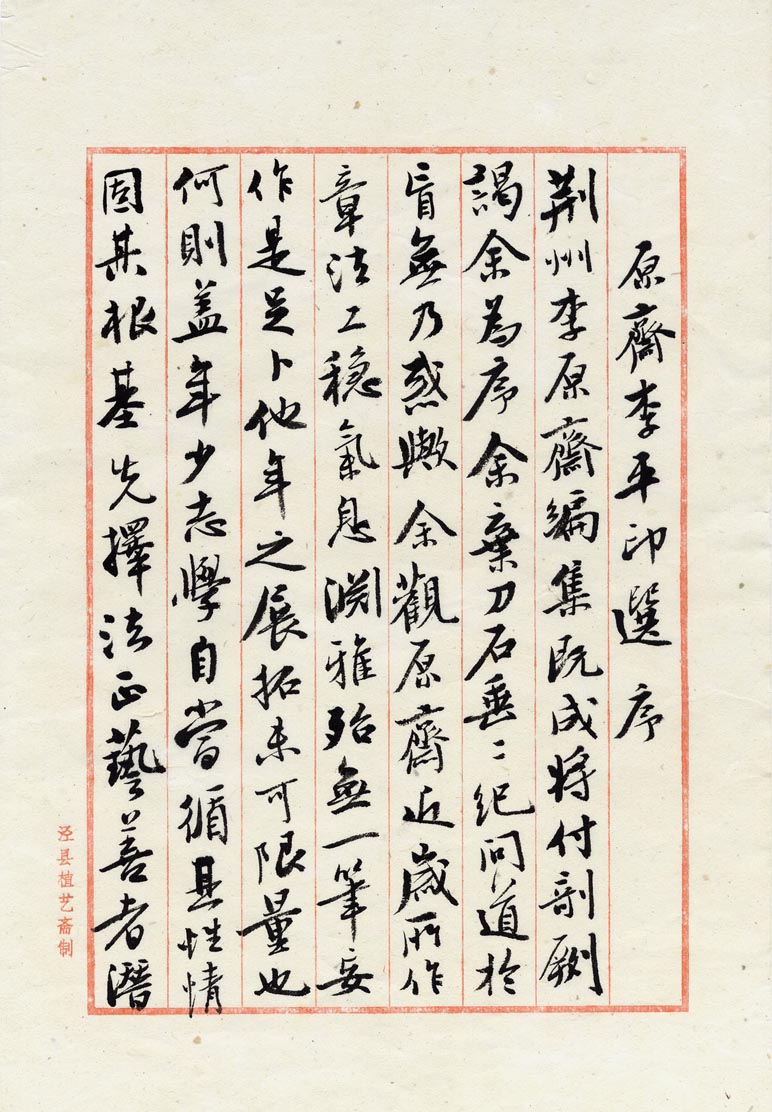 原齋李平印選序
荆州李原齋編集既成将付剞劂
謁余為序余棄刀石垂二紀問道於
盲無乃惑歟余觀原齋近歲所作
章法工穩氣息淵雅殆無一筆妄
作是足卜他年之展拓未可限量也
何則盖年少志學自當循其性情
固其根基先擇法正藝善者潛
泾县植艺斋制